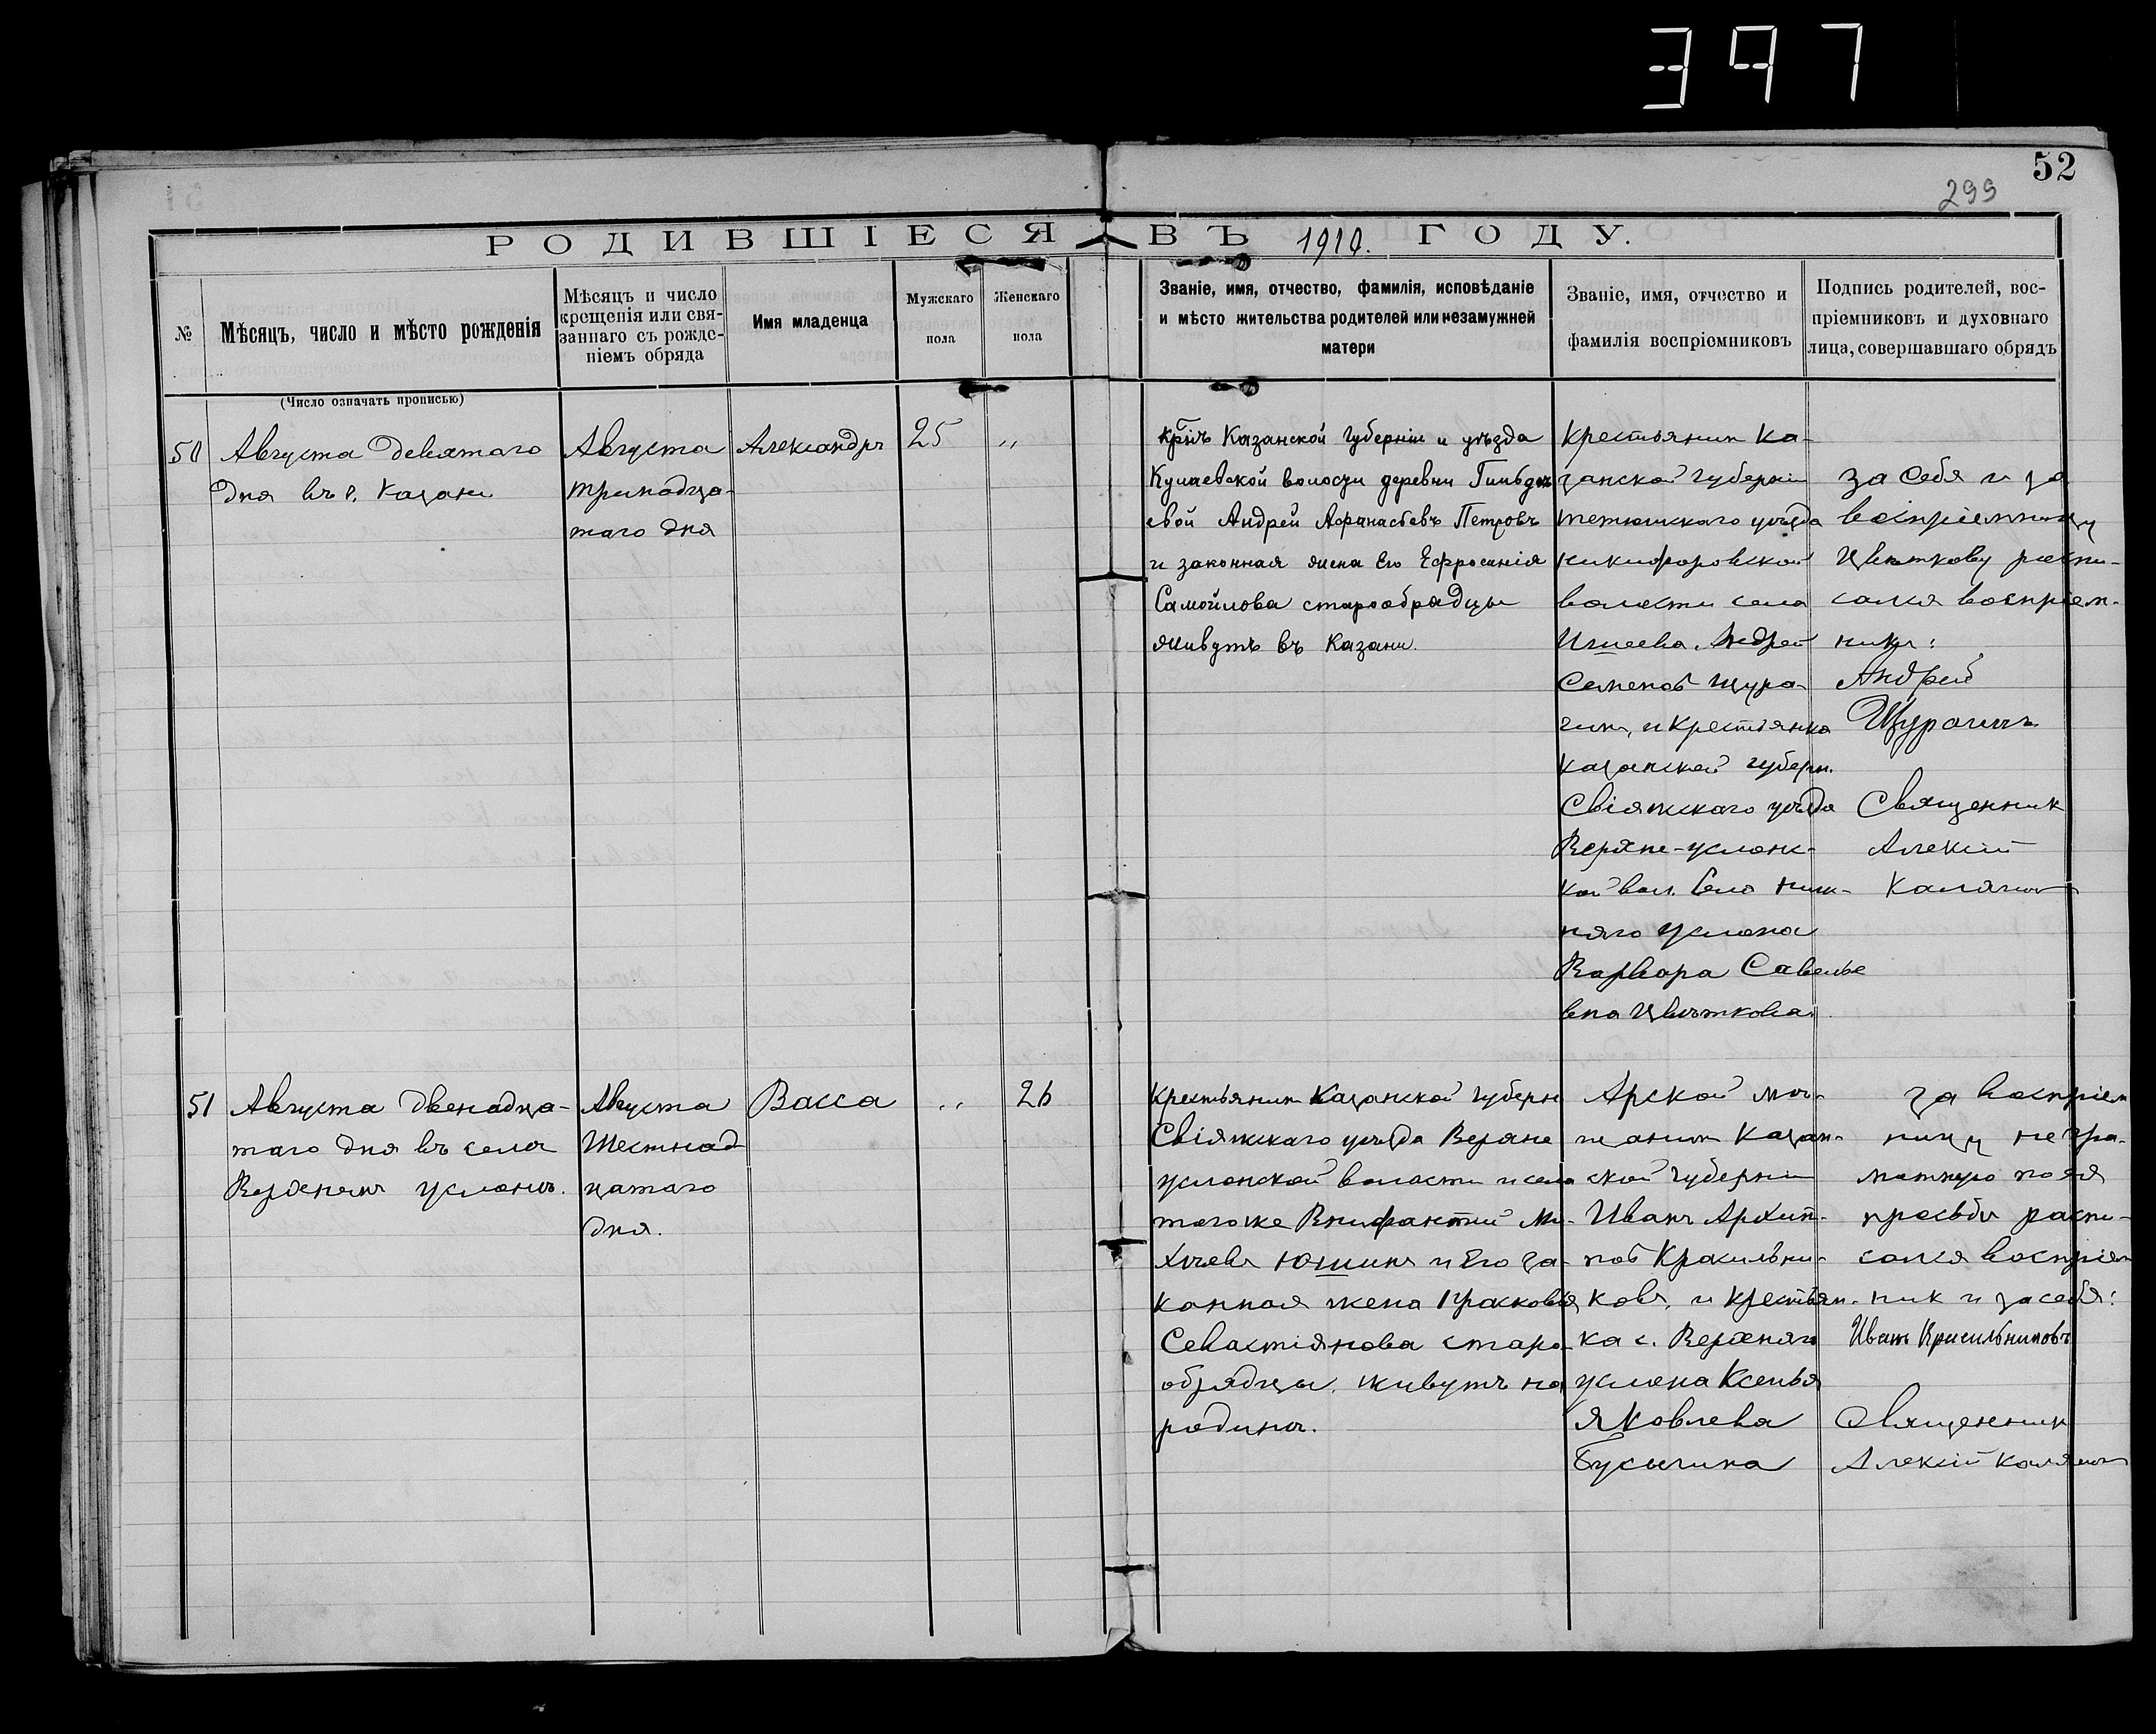 397
52
299
РОДИВШІЕСЯ ВЪ 1910. ГОДУ.
№
Мѣсяцъ, число и мѣсто рожденія
Мѣсяцъ и число
крещенія или свя-
заннаго съ рожде-
ніемъ обряда
Имя младенца
Мужскаго
пола
Женскаго
пола
Званіе, имя, отчество, фамилія, исповѣданіе
и мѣсто жительства родителей или незамужней
матери
Званіе, имя, отчество и
фамилія воспріемниковъ
Подпись родителей, вос-
пріемниковъ и духовнаго
лица, совершавшаго обрядъ
(Число означать прописью)
50
Августа девятаго
дня въ г. Казани
Августа
тринадца-
таго дня
Александръ
25
„
Казанской губерніи и уѣзда
Кулаевской волости деревни
евой Андрей Афанасьевъ Петровъ
и законная жена его Ефросинія
Самойлова старообрядцы
живутъ въ Казани.
Крестьянин Ка-
занской губерніи
тетюшскаго уѣзда
никифоровской
волости села
Андрей
Семенов Щура-
гин, и Крестьянка
Казанской губерн.
Свіяжскаго уѣзда
Верхне-услон-
кой вол. Села ниж-
няго Услона
Варвара Савелье
вна Цвѣткова.
за себя и за
воспріемницу
Цвѣткову распи-
сался воспріем-
никъ:
Андрей
Щурагинъ
Священник
Алексій
Калягин
51
Августа двенадца-
таго дня въ селѣ
Верхнемъ Услонѣ.
Августа
Шестнад
цатаго
дня.
Васса
„
26
Крестьянин Казанской губерн
Свіяжскаго уѣзда Верхне
услонской волости и села
тогоже Внифантій Ми-
хѣевъ Юшинъ и его за-
конная жена Прасковія
Севастіянова старо-
обрядцы. живутъ на
родинѣ.
Арской мѣ-
щанин Казан-
ской губерніи
Иванъ Архип-
пов Красильни-
ковъ, и крестьян-
ка с. Верхняго
услона Ксенья
Яковлева
Бусыгина
за воспріем
ницу негра-
матную по ея
просьбы распи-
сался воспріем
ник и за себя:
Иванъ Красильниковъ
Священник
Алексій Калягин